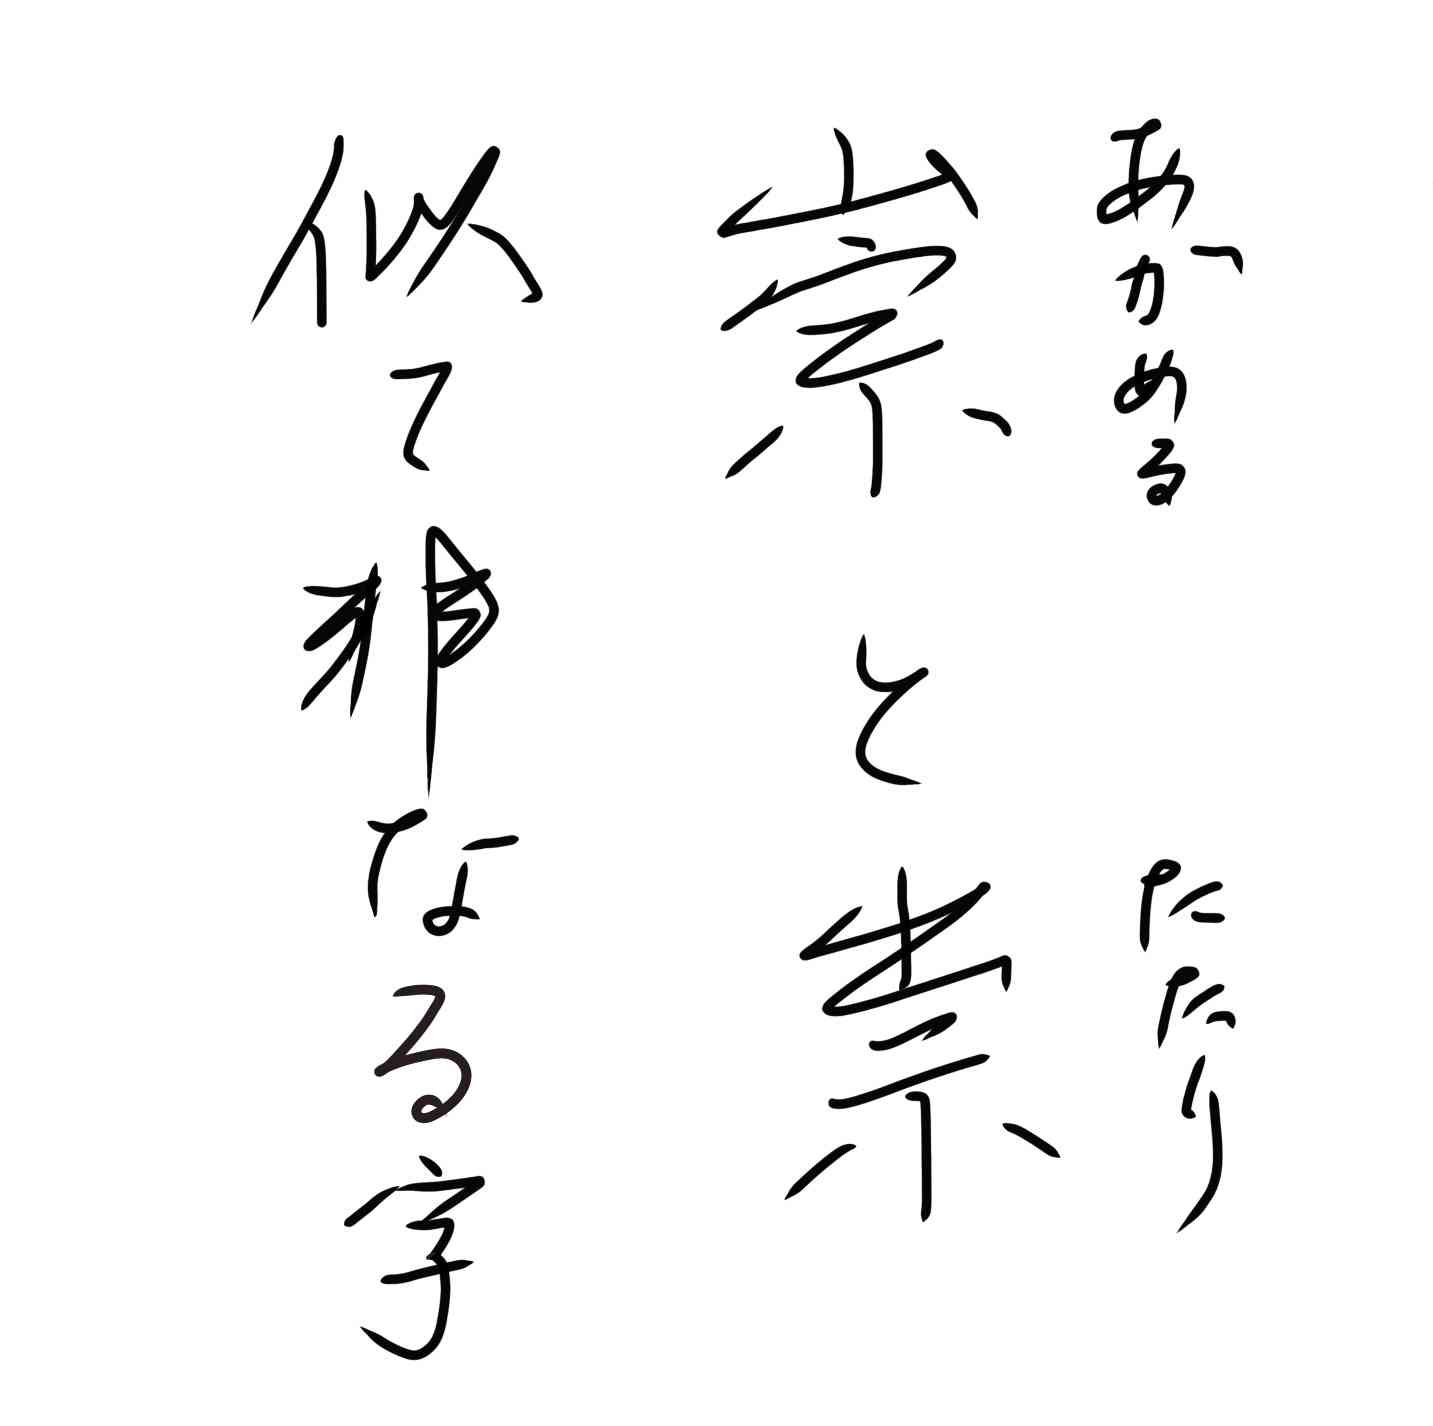 あかめる たたり
崇と祟
似て非なる字